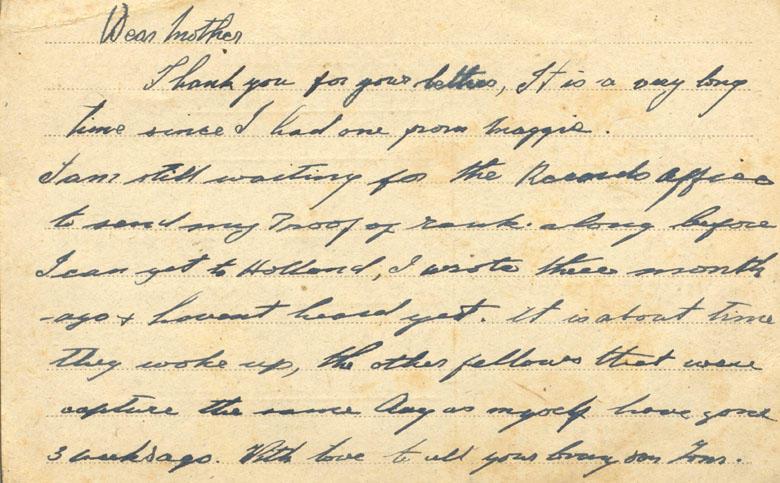 Dear Mother
Thank you for your letters, It is a very long
time since I had one from Maggie.
I am still waiting for the Records Office
to send my Proof of rank along before
I can get to Holland, I wrote three month
ago & havent heard yet. it is about time
they woke up, the other fellows that were
capture the same day as myself have gone
3 weeks ago. With love to all your loving son Tom.